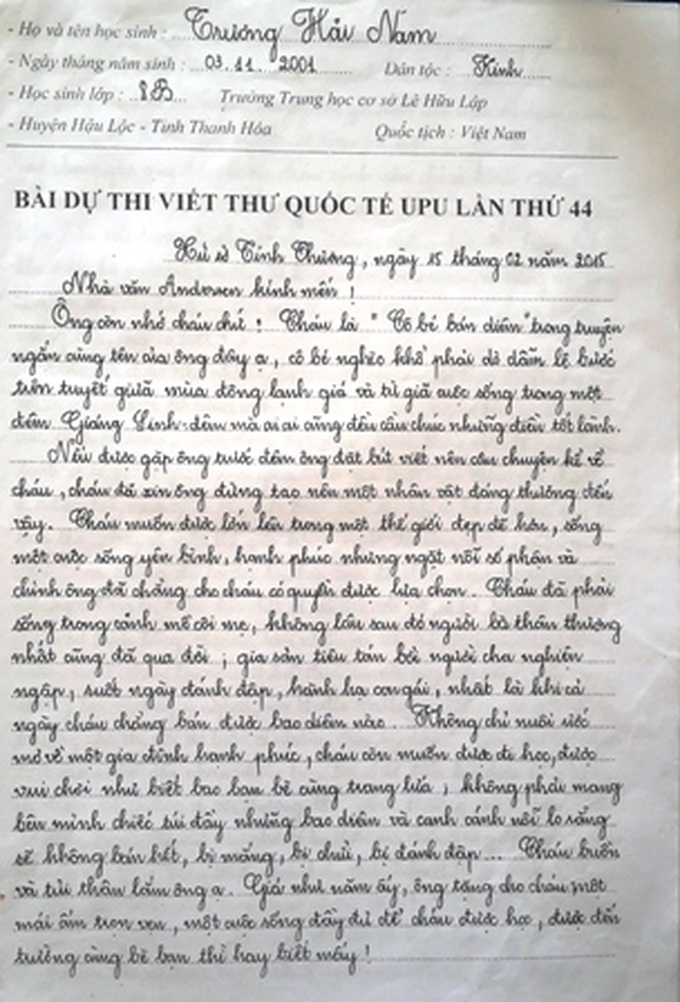 - Họ và tên học sinh : Trương Hải Nam
- Ngày tháng năm sinh : 03.11.2001 Dân tộc : Kinh
- Học sinh lớp : 8B Trường Trung học cơ sở Lê Hữu Lập
- Huyện Hậu Lộc - Tỉnh Thanh Hóa Quốc tịch : Việt Nam
BÀI DỰ THI VIẾT THƯ QUỐC TẾ UPU LẦN THỨ 44
Xứ sở Tình Thương, ngày 15 tháng 02 năm 2015
Nhà văn Andersen kính mến !
Ông còn nhớ cháu chứ ! Cháu là " Cô bé bán diêm" trong truyện
ngắn cùng tên của ông đây ạ, cô bé nghèo khổ phải dò dẫm lê bước
trên tuyết giữa mùa đông lạnh giá và từ giã cuộc sống trong một
đêm Giáng Sinh - đêm mà ai ai cũng đều cầu chúc những điều tốt lành.
Nếu được gặp ông trước đêm ông đặt bút viết nên câu chuyện kể về
cháu, cháu đã xin ông đừng tạo nên một nhân vật đáng thương đến
vậy. Cháu muốn được lớn lên trong một thế giới đẹp đẽ hơn, sống
một cuộc sống yên bình, hạnh phúc nhưng ngặt nỗi số phận và
chính ông đã chẳng cho cháu có quyền được lựa chọn. Cháu đã phải
sống trong cảnh mồ côi mẹ, không lâu sau đó người bà thân thương
nhất cũng đã qua đời ; gia sản tiêu tán bởi người cha nghiện
ngập, suốt ngày đánh đập, hành hạ con gái, nhất là khi cả
ngày cháu chẳng bán được bao diêm nào. Không chỉ nuôi ước
mơ về một gia đình hạnh phúc, cháu còn muốn được đi học, được
vui chơi như biết bao bạn bè cùng trang lứa, không phải mang
bên mình chiếc túi đầy những bao diêm và canh cánh nỗi lo rằng
sẽ không bán hết, bị mắng, bị chửi, bị đánh đập... Cháu buồn
và tủi thân lắm ông ạ. Giá như năm ấy, ông tặng cho cháu một
mái ấm trọn vẹn, một cuộc sống đầy đủ để cháu được học, được đến
trường cùng bè bạn thì hay biết mấy !